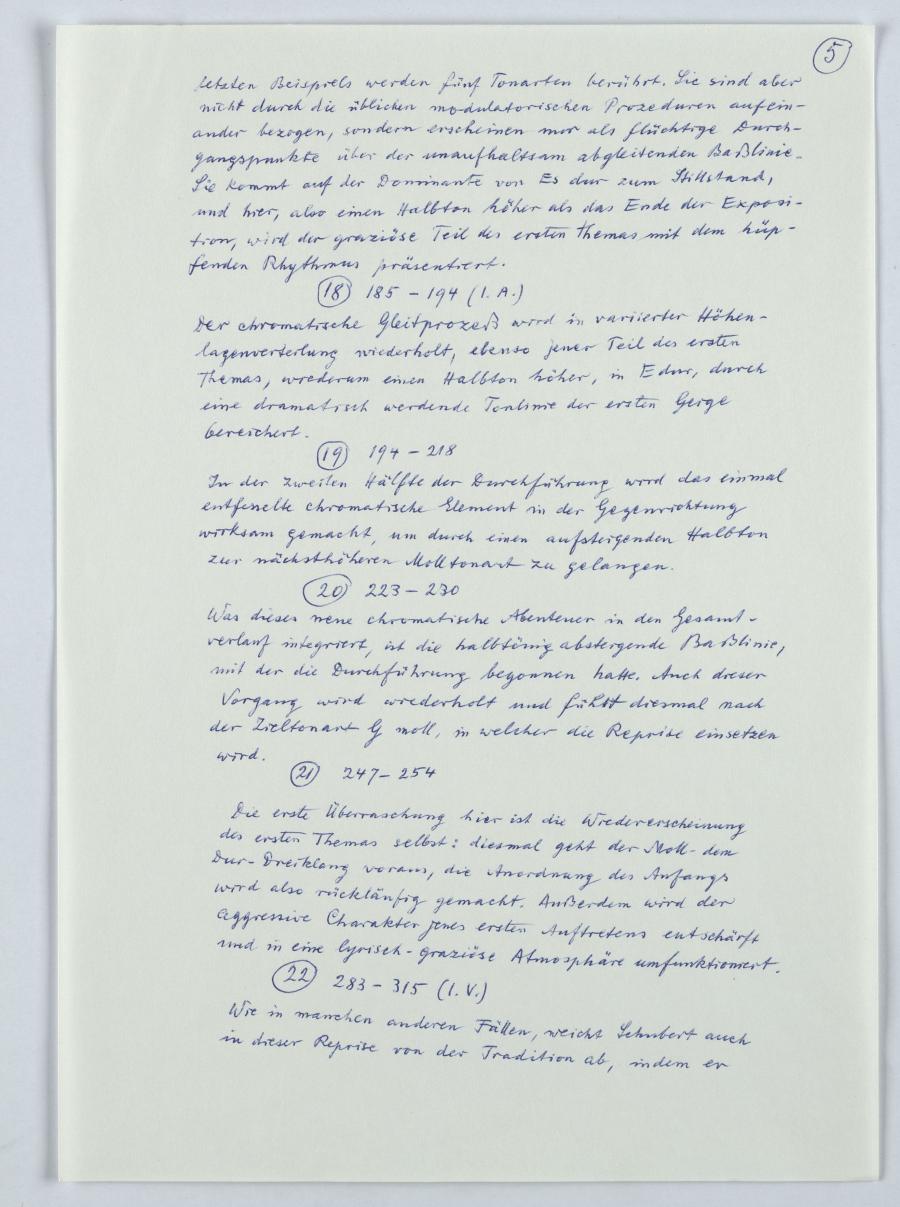 5
letzten Beispiels werden fünf Tonarten berührt. Sie sind aber
nicht durch die üblichen modulatorischen Prozeduren aufein-
ander bezogen, sondern erscheinen nur als flüchtige Durch-
gangspunkte über der unaufhaltsam abgleitenden Baßlinie.
Sie kommt auf der Dominante von Es dur zum Stillstand,
und hier, also einen Halbton höher als das Ende der Exposi-
tion, wird der graziöse Teil des ersten Themas mit dem hüp-
fenden Rhythmus präsentiert.
18 185 – 194 (I. A.)
Der chromatische Gleitprozeß wird in variierter Höhen-
lagenverteilung wiederholt, ebenso jener Teil des ersten
Themas, wiederum einen Halbton höher, in E dur, durch
eine dramatisch werdende Tonlinie der ersten Geige
bereichert.
19 194 – 218
In der zweiten Hälfte der Durchführung wird das einmal
entfesselte chromatische Element in der Gegenrichtung
wirksam gemacht, um durch einen aufsteigenden Halbton
zur nächsthöheren Molltonart zu gelangen.
20 223 – 230
Was dieses neue chromatische Abenteuer in den Gesamt-
verlauf integriert, ist die halbtönig absteigende Baßlinie,
mit der die Durchführung begonnen hatte. Auch dieser
Vorgang wird wiederholt und führt diesmal nach
der Zieltonart G moll, in welcher die Reprise einsetzen
wird.
21 247 – 254
Die erste Überraschung hier ist die Wiedererscheinung
des ersten Themas selbst: diesmal geht der Moll- dem
Dur-Dreiklang voraus, die Anordnung des Anfangs
wird also rückläufig gemacht. Außerdem wird der
aggressive Charakter jenes ersten Auftretens entschärft
und in eine lyrisch-graziöse Atmosphäre umfunktioniert.
22 283 – 315 (I. V.)
Wie in manchen anderen Fällen, weicht Schubert auch
in dieser Reprise von der Tradition ab, indem er